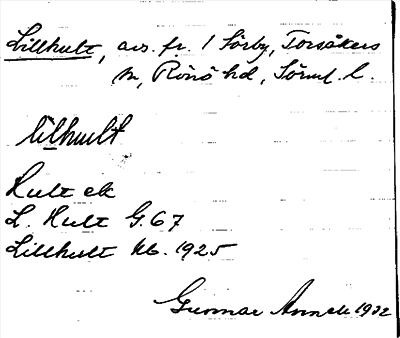 Lillhult, avs. fr. 1 Sörby, Torsåkers
sn, Rönö hd, Sörml. l.
lilhult
Hult ek
L. Hult G. 67
Lillhult kb. 1925
Gunnar 1932